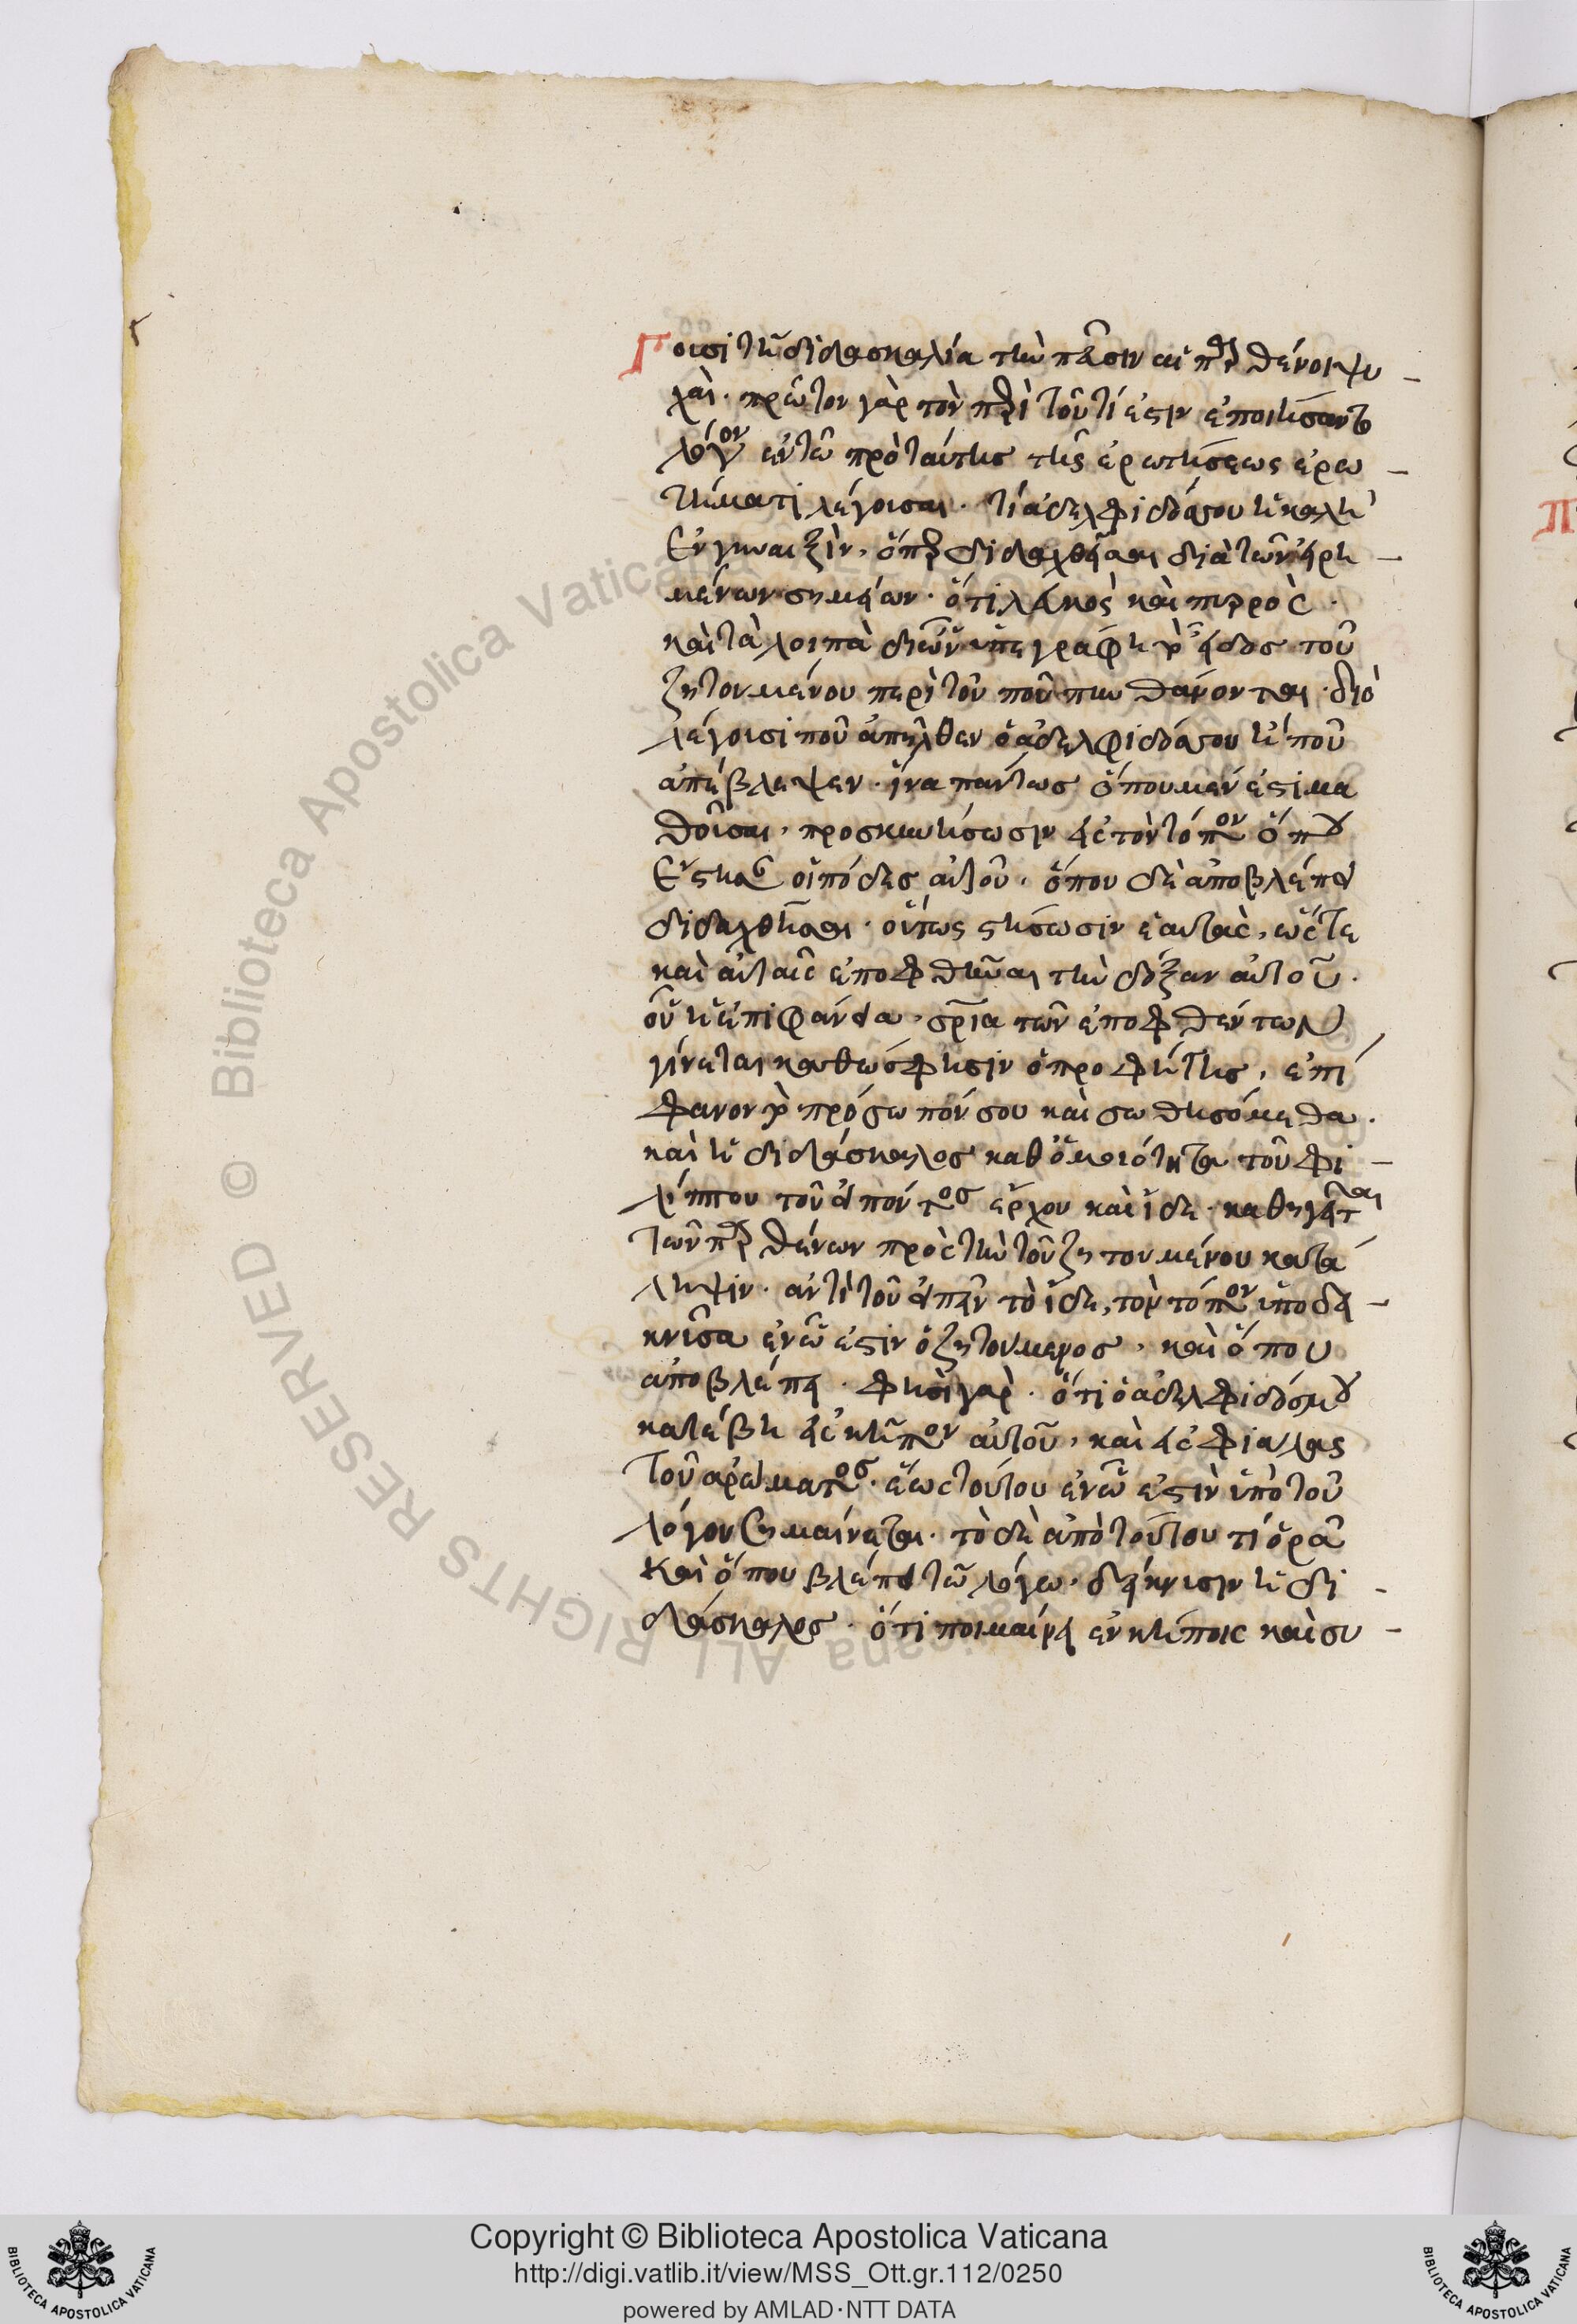 Γουσι τῆ διδασκαλία τὴν πεῦσιν αἱ παρθένοι ψυ –
χαί. πρῶτον γὰρ τὸν περὶ τοῦ τί ἐστιν ἐποιήσαντο
λόγον ἐν τῶ πρὸ ταύτης τῆς ἐρωτήσεως ἐρω –
τήματι λέγουσαι. τί ἀδελφιδόσου ἡ καλὴ
ἐν γυναιξὶν. ὅπερ διδαχθεῖσαι διὰ τῶν εἰρη –
μένων σημείων. ὅτι λευκὸς καὶ πυρρὸς.
καὶ τὰ λοιπὰ δι ὧν ὑπεγράφη τὸ εἶδος τοῦ
ζητουμένου περὶ τοῦ ποῦ πυνθάνονται. διὸ
λέγουσι ποῦ ἀπῆλθεν ὁ ἀδελφιδόσου ἢ ποῦ
ἀπέβλεψεν. ἵνα πάντως ὅπου μέν ἐστι μα
θοῦσαι. προσκυνήσωσιν εἰς τὸν τόπον ὅπου
ἔστησαν οἱ πόδες αὐτοῦ. ὅπου δὲ ἀποβλέπει
διδαχθῆσαι. οὕτως στήσωσιν ἑαυτὰς, ὥστε
καὶ αὐταῖς ἐποφθῆναι τὴν δόξαν αὐτοῦ.
οὗ ἡ ἐπιφάνεια. σρία τῶν ἐποφθέντων
γίνεται καθὼς φησιν ὁ προφήτης, ἐπί
φανον τὸ πρόσωπόν σου καὶ σωθησόμεθα.
καὶ ἡ διδάσκαλος καθ ὁμοιότητα τοῦ φι –
λίππου τοῦ εἰπόντος ἔρχου καὶ ἴδε. καθηγεῖται
τῶν παρθένων πρὸς τὴν τοῦ ζητουμένου κατά
ληψιν. ἀντὶ τοῦ εἰπεῖν τὸ ἴδε, τὸν τόπον ὑποδει –
κνῦσα ἐν ὧ ἐστιν ὁ ζητούμενος. καὶ ὅπου
ἀποβλέπει. φησὶ γαρ. ὅτι ὁ ἀδελφιδόςμου
κατέβη εἰς κῆπον αὐτοῦ, καὶ εἰς φιάλας
τοῦ ἀρώματος. ἕως τούτου ἐν ὧ ἐστὶν ὑπὸ τοῦ
λόγου σημαίνεται. τὸ δὲ ἀπὸ τούτου τί ὁρᾶ
καὶ ὅπου βλέπει τῶ λόγω. δείκνυσιν ἡ δι –
δάσκαλος. ὅτι ποιμαίνει ἐν κήποις καὶ συ –
Copyright © Biblioteca Apostolica Vaticana
http://digi.vatlib.it/view/MSS_Ott.gr.112/0250
powered by AMLAD·NTT DATA